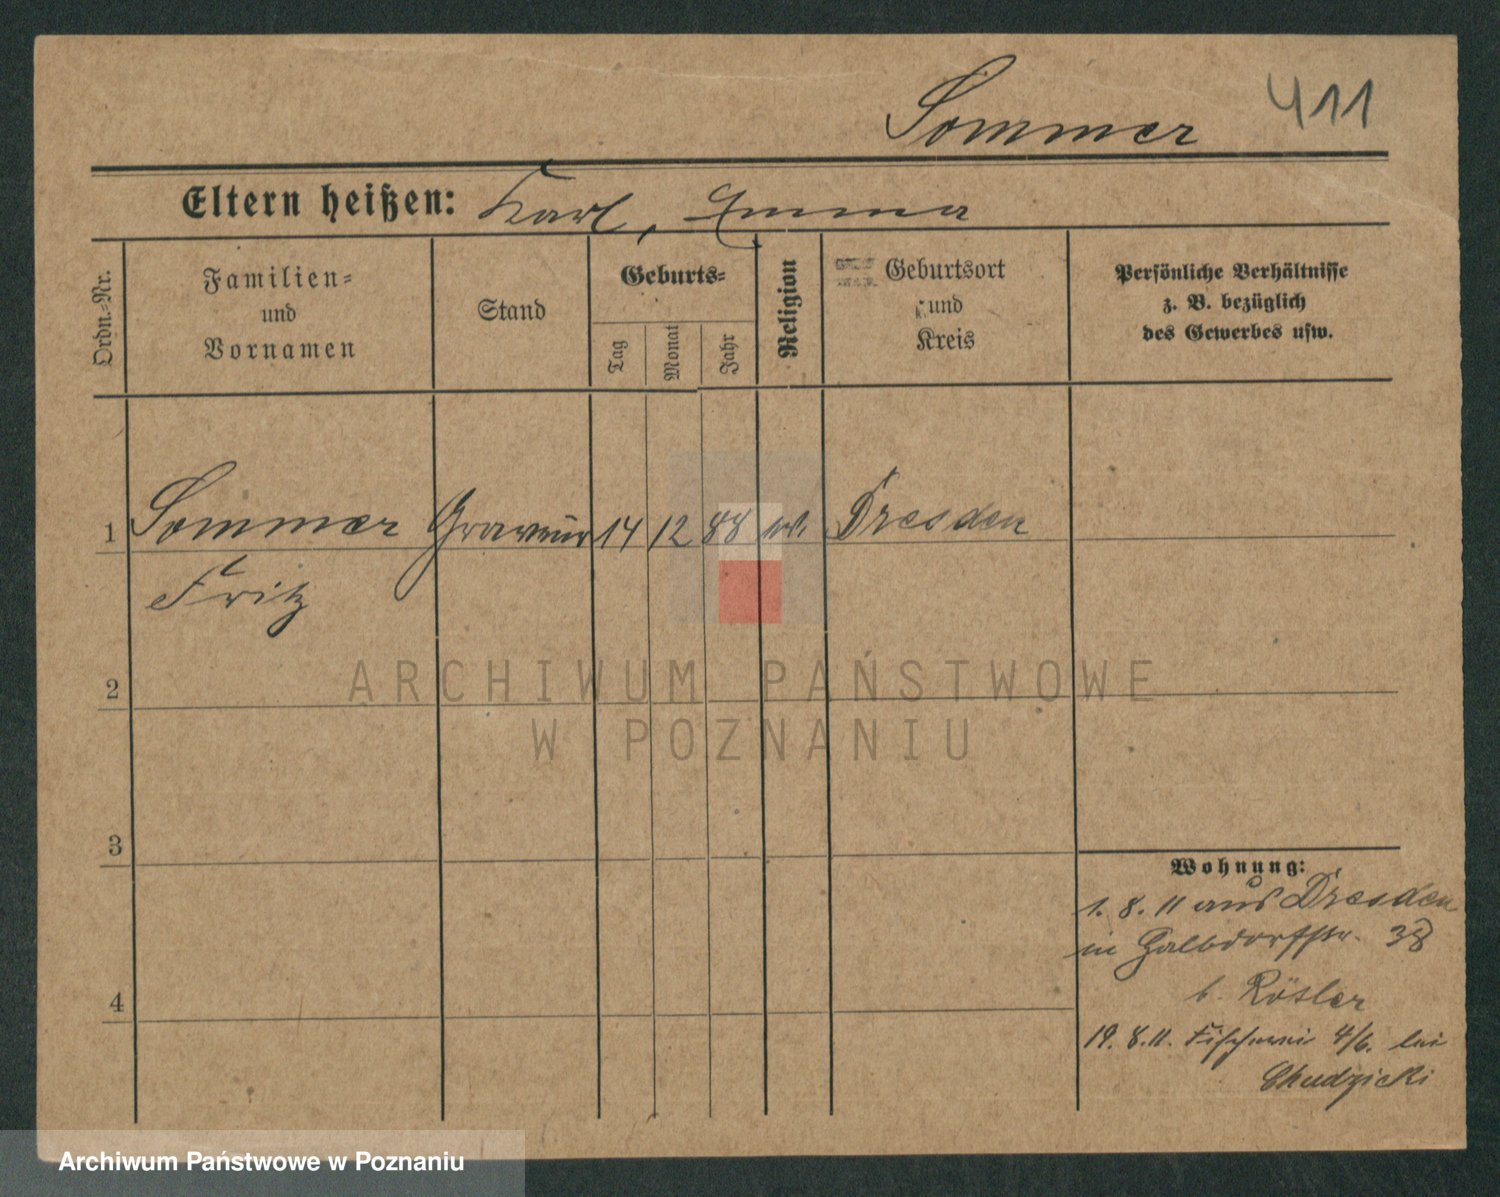 Sommer 411
Eltern heißen: Karl, Emma
Ordn.=Nr.
Familien=
und
Vornamen
Stand
Geburts=
Tag
Monat
Jahr
Religion
Geburtsort
und
Kreis
Persönliche Verhältnisse
z. B. bezüglich
des Gewerbes usw.
1 Sommer Graveur 14 12 88 ev. Dresden
Fritz
2
3
4
Wohnung:
1. 8. 11 aus Dresden
in Halbdorfstr. 38
b. Rösler
19. 8. 11. Fischerei 4/6. bei
Chudzicki
ARCHIWUM PAŃSTWOWE
W POZNANIU
Archiwum Państwowe w Poznaniu